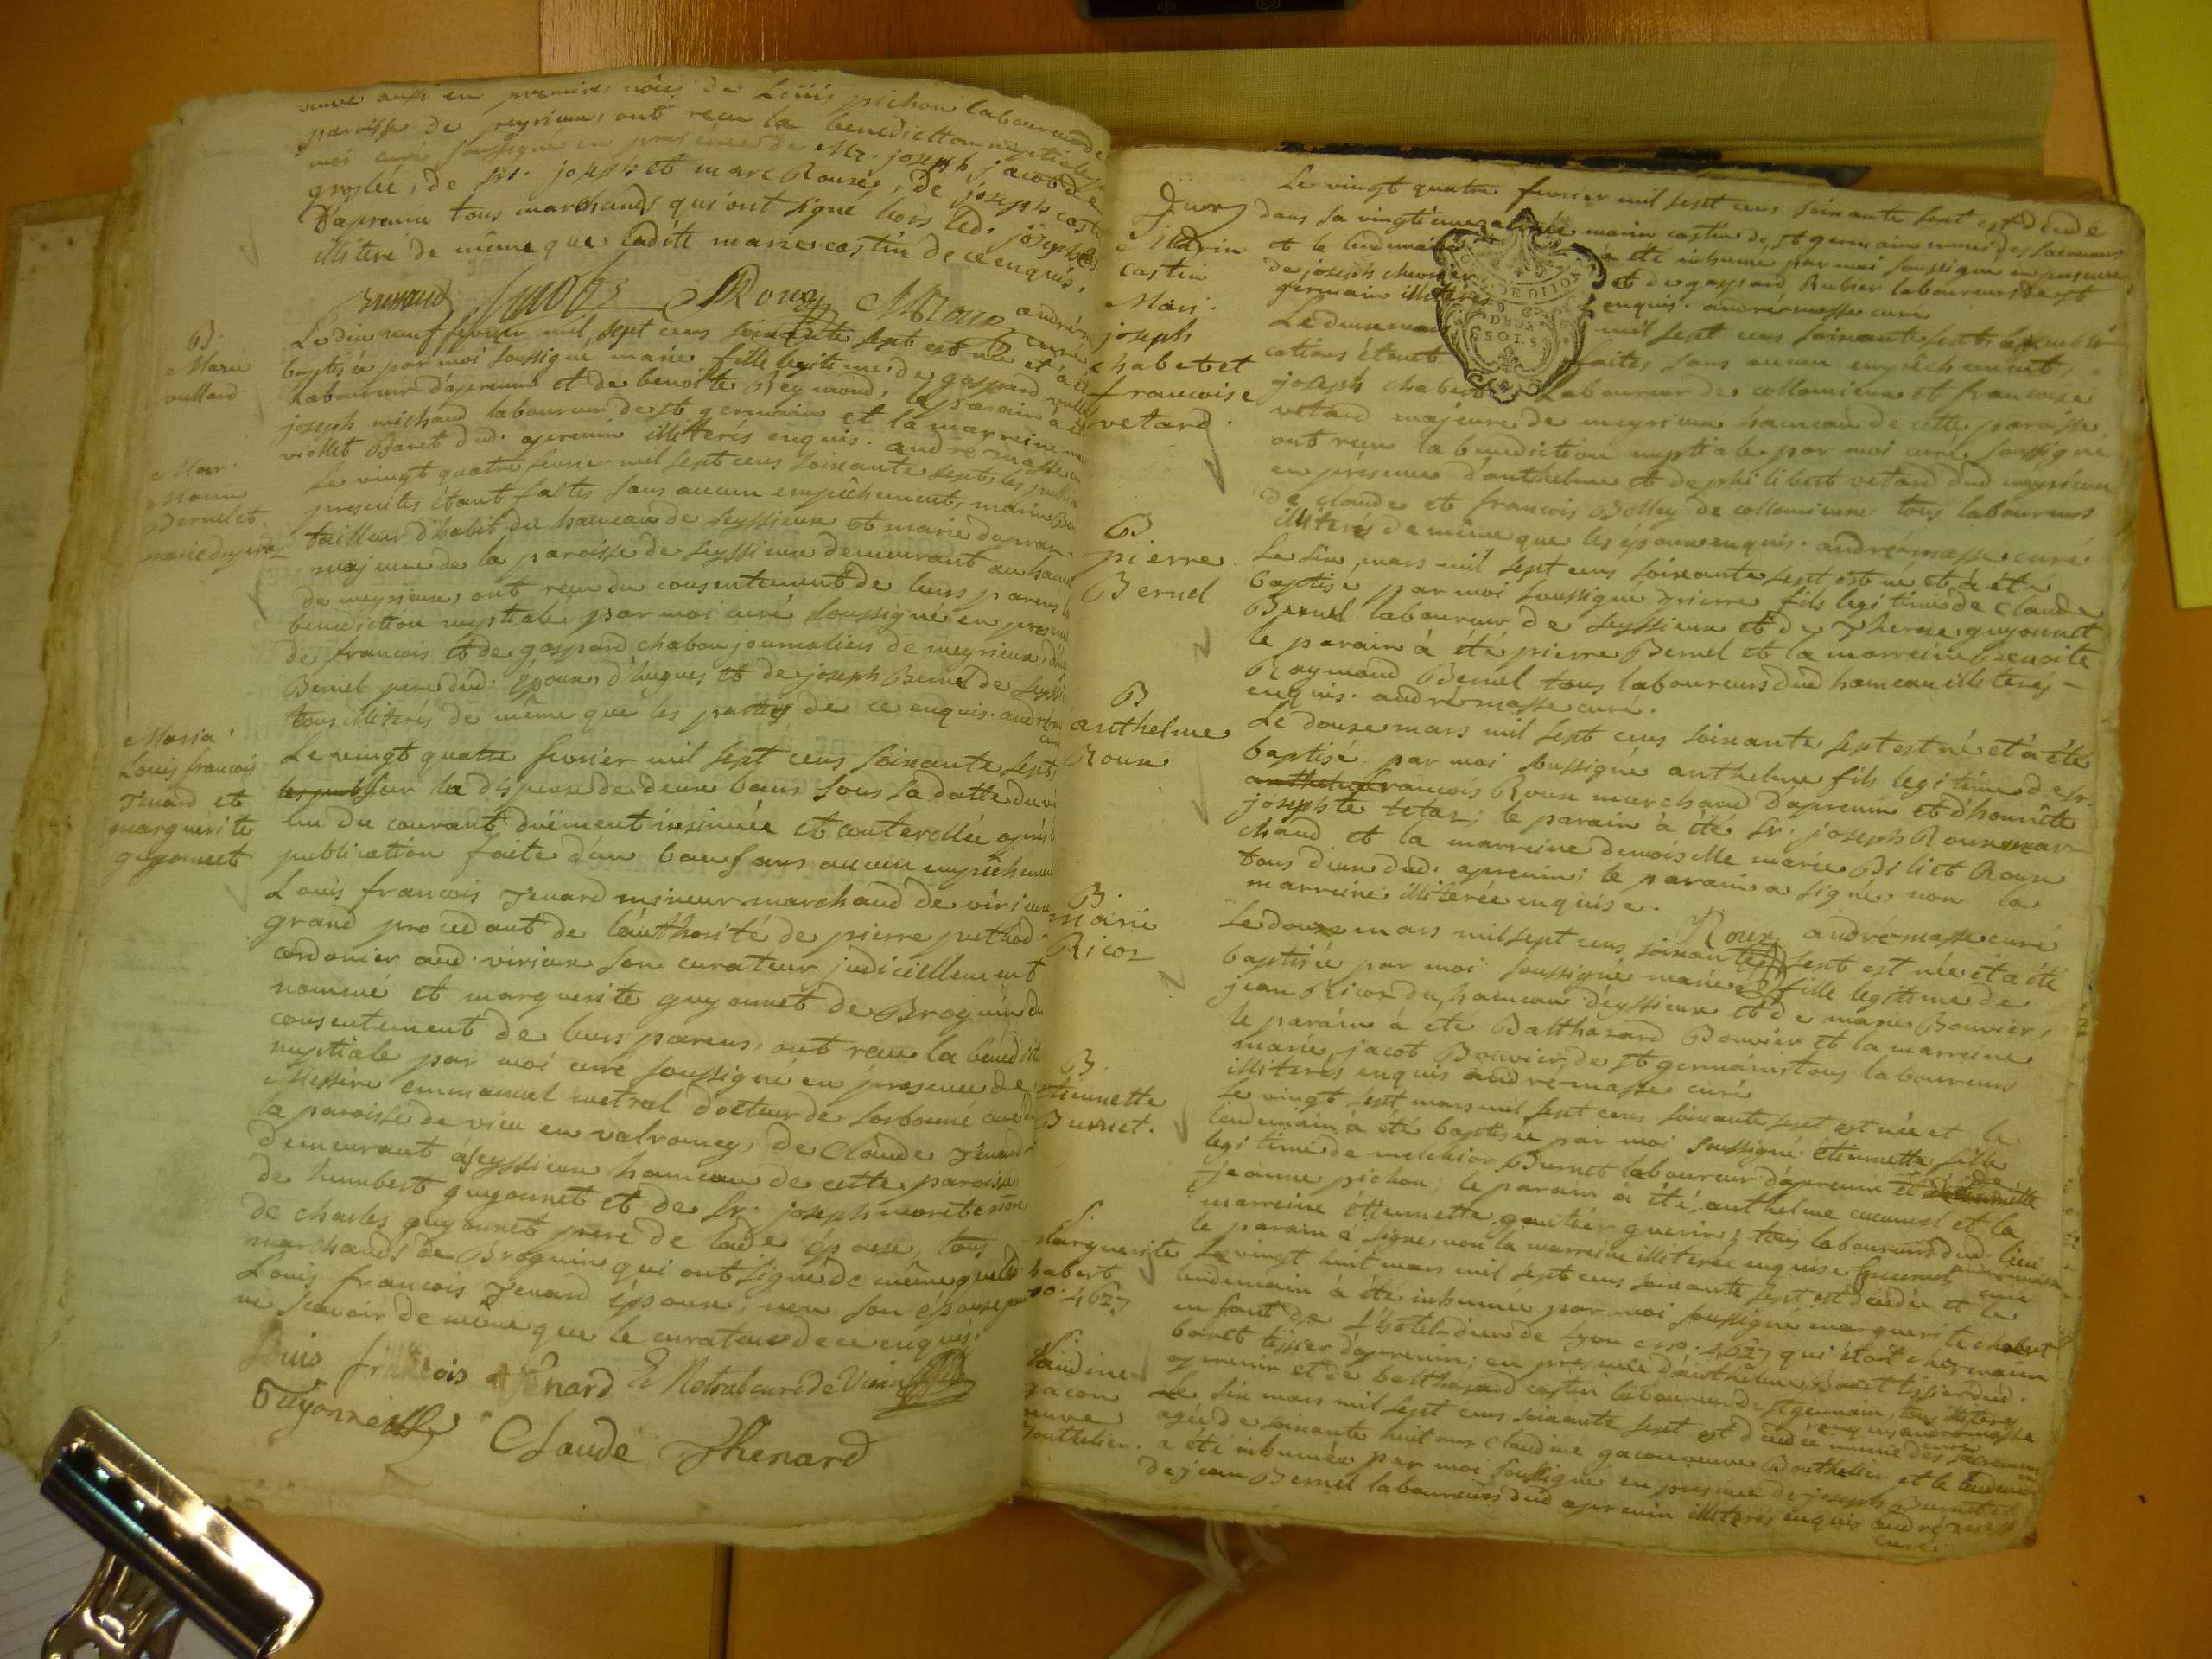 veuve aussi en premieres nôces de Loüis pichon laboureur de
paroisse de peyrieu, ont recu la benediction nuptiale p
moi curé soussigné en presence de Mr. joseph jacob de
groslée, de srs. joseph et marc Rouse, de joseph cast
D'apremin tous marchands qui ont signé hors led. joseph
illiteré de même que ladite marie castin de ce enquis.
andré
curé
B.
Marie
vullard
Le dix neuf fevrier mil sept cens soixante sept est née et a é
baptisée par moi soussigné marie fille legitime de gaspard vull
Laboureur d'apremin et de benoite Reymond, le parain a é
joseph michaud laboureur de st germain et la marreine
viollet Baret dud. apremin illiterés enquis. andré masse
Mar.
Marin
Bernel et
marie dupra
Le vingt quatre fevrier mil sept cens soixante sept, les publi
prescrites étant faites sans aucun empêchement, marin Be
tailleur d'habit du hameau de seyssieux et marie dupra
majeure de la paroisse de seyssieux demeurant au ham
de meyrieux, ont recu du consentement de leurs parens
benediction nuptiale par moi curé soussigné en presen
de francois et de gaspard chabou journaliers de meyrieux, d
Bernel pere dud. époux, d'hugues et de joseph Bernel de seyssi
tous illiterés de même que les parties de ce enquis. andré
cur
Maria.
Louis francois
Tenard et
marguerite
guyonnet
Le vingt quatre fevrier mil sept cens soixante sept
sur la dispense de deux bans sous la datte du vi
un du courant dûement insinuée et conterollée après
publication faite d'un ban sans aucun empêchem
Louis francois Tenard mineur marchand de virieux
grand procedant de l'authorité de pierre pethod
cordonier aud. virieux son curateur judiciellement
nommé et marguerite guyonnet de Brognin du
consentement de leurs parens, ont recu la bénédict
nuptiale par moi curé soussigné en presence de
Messire emmanuel metral docteur de sorbonne curé d
la paroisse de vieu en valromey, de Claude Tenard
demeurant a seyssieux hameau de cette paroisse
de humbert guyonnet et de sr. joseph
de charles guyonnet pere de lade épouse, tous
marchands de Brognin qui ont signé de même que led
Louis francois Tenard époux, non son épouse pour
ne scavoir de même que le curateur de ce enquis.
Louis francois Thénard E Metral curé de Vieu
Guyonnet
Claude Thenard
Marin
castin
Le vingt quatre fevrier mil sept cens soixante sept est decedé
dans sa vingtieme marin castin de st germain muni des sacremens
et le lendemain a été inhumé par moi soussigné en presence
de joseph chevrier et de gaspard Rubier laboureurs de st
germain illiterés enquis. andré masse curé
Mari.
joseph
chabet et
francoise
vetard.
Le mil sept cens soixante sept
cations étant faites sans aucun empêchement,
joseph chabert laboureur de collomieux et francoise
vetard majeure de meyrieux hameau de cette paroisse
ont recu la benediction nuptiale par moi curé soussigné
en presence d'anthelme et de philibert vetard dud meyrieux
de claude et francois Bolley de collomieux tous laboureurs
illiterés de même que les époux enquis. andré masse curé
B
pierre
Bernel
Le six mars mil sept cens soixante sept est né et a été
baptisé par moi soussigné pierre fils legitime de claude
Bernel laboureur de seyssieux et de Therese guyonnet
le parain à été pierre Bernel et la marreine benoite
Raymond Bernel tous laboureurs dud hameau illiterés
enquis. andré masse curé.
B
anthelme
Roux
Le douse mars mil sept cens soixante sept est né et à été
baptisé par moi soussigné anthelme fils legitime de sr.
francois Roux marchand d'apremin et d'honnête
josephte tetaz; le parain à été sr. joseph Roux mar-
chand et la marreine demoiselle marie Biliet Roux
tous deux dud. apremin; le parain a signé non la
marreine illiterée enquise.
Roux andré masse curé
B.
marie
Ricoz
Le douse mars mil sept cens soixante sept est née et a été
baptisée par moi soussigné marie fille legitime de
jean Ricoz du hameau d'eyssieux et de marie Bouvier,
le parain à été Balthazard Bouvier et la marreine
marie jacot Bouvier de st germain tous laboureurs
illiterés enquis andré masse curé
B.
étiennette
Burnet.
Le vingt sept mars mil sept cens soixante sept est née et le
lendemain à été baptisée par moi soussigné étiennette fille
legitime de melchior Burnet laboureur d'apremin et de
jeanne pichon; le parain à été anthelme cucumel et la
marreine étiennette gautier guerin; tous laboureurs dud. lieu
le parain a signé non la marreine illiterée enquise
curé
S.
Marguerite
chabert
no. 4627
Le vingt huit mars mil sept cens soixante sept est decedée et le
lendemain à été inhumée par moi soussigné marguerite chabert
enfant de l'hotel-dieu de Lyon no. 4627 qui étoit chez marin
baret tissier d'apremin; en presence d'anthelme Baret tissier dud.
apremin et de balthasard castin laboureur de st germain, tous illiterés
enquis andré masse
curé
Claudine
gacon
veuve
Bouthelier.
Le six mars mil sept cens soixante sept est decedée munie des sacremens
agée de soixante huit ans claudine gacon veuve Bouthelier et le lendemain
a été inhumée par moi soussigné en presence de joseph Burnet et
de jean Bernel laboureurs dud apremin illiterés enquis andré masse
curé